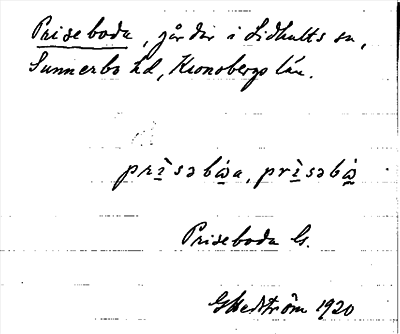 Priseboda, gårdar i Lidhults sn,
Sunnerbo hd, Kronobergs län.
prìsəbὼa, prìsəbὼ
Priseboda G.
GHedström 1920